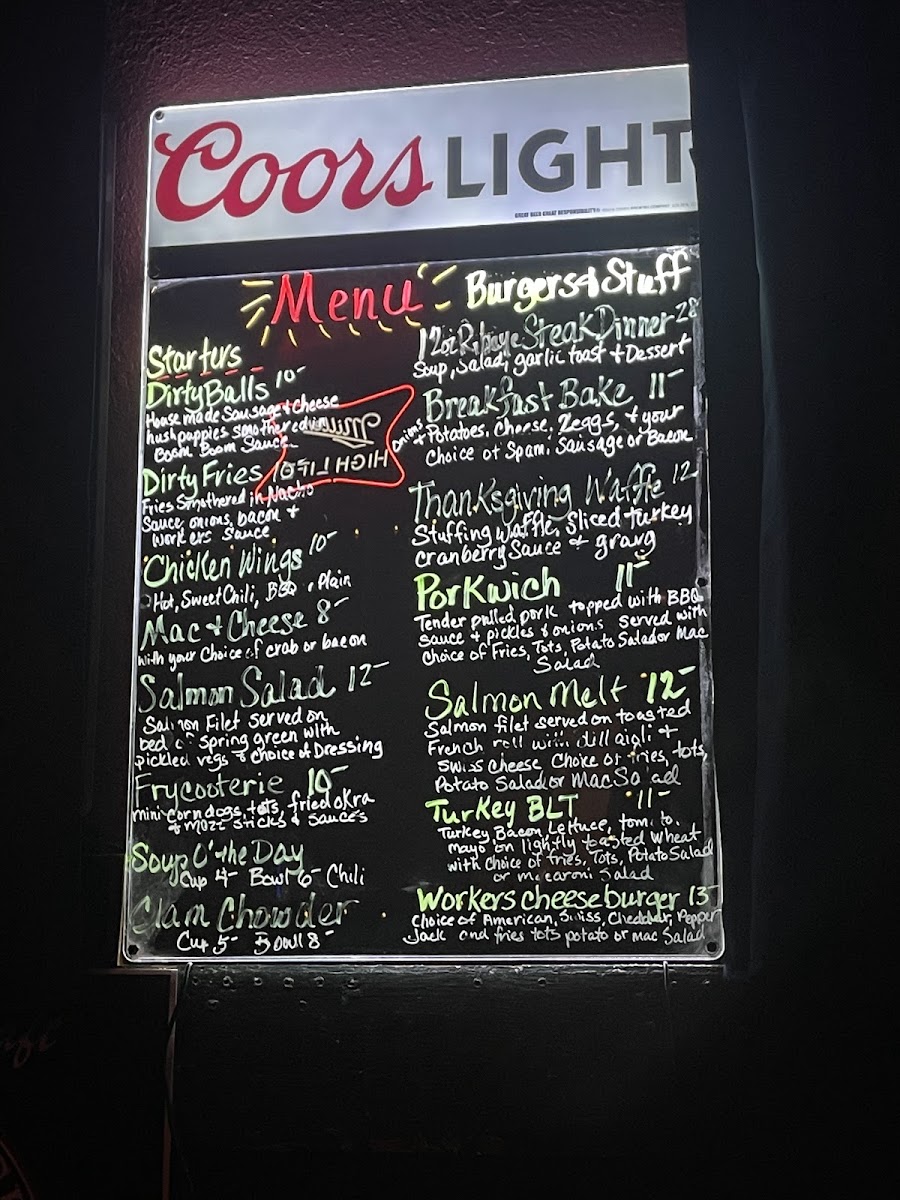 Coors LIGHT
GREAT BEER GREAT RESPONSIBILITY®
Menu
Starturs
Dirty Balls 10-
House made Sausage & Cheese
hushpuppies smothered in
Boom Boom Sauce
Dirty Fries 10-
Fries Smothered in Nacho
Sauce, onions, bacon +
Workers Sauce
Chicken Wings 10-
Hot, Sweet Chili, BBQ, Plain
Mac & Cheese 8-
with your Choice of crab or bacon
Salmon Salad 12-
Salmon Filet served on
bed of spring green with
pickled vegs & choice of Dressing
Frycooterie 10-
mini corn dogs, tots, fried okra
& Mozz Sticks & Sauces
Soup O' the Day
Cup 4- Bowl 6- Chili
Clam Chowder
Cup 5- Bowl 8-
Burgers & Stuff
12oz Ribeye Steak Dinner 28
Soup, Salad, garlic toast + Dessert
Breakfast Bake 11-
onions
+ Potatoes, Cheese, 2 eggs, + your
Choice of Spam, Sausage or Bacon
Thanksgiving Waffle 12-
Stuffing waffle, Sliced turkey
cranberry Sauce & gravy
Porkwich 11-
Tender pulled pork topped with BBQ
Sauce & pickles & onions served with
Choice of Fries, Tots, Potato Salad or Mac
Salad
Salmon Melt 12-
Salmon filet served on toasted
French roll with dill aigli +
Swiss cheese Choice of fries, tots,
Potato Salad or Mac Salad
Turkey BLT 11-
Turkey, Bacon, Lettuce, tomato,
mayo on lightly toasted wheat
with choice of fries, Tots, Potato Salad
or macaroni Salad
Workers cheeseburger 13-
Choice of American, Swiss, Cheddar, Pepper
Jack and fries tots potato or mac Salad
Miller
HIGH LIFE